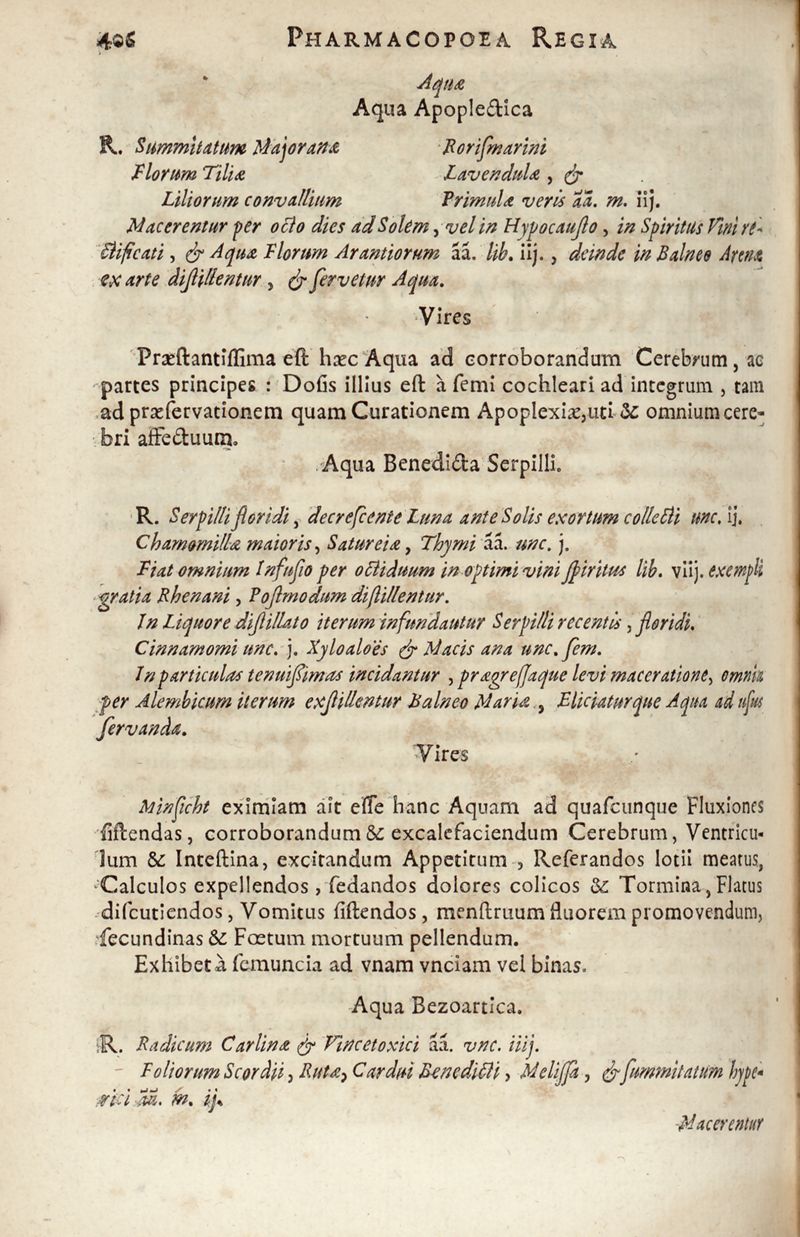 406 PHARMACOPOEA REGIA
Aquæ
Aqua Apoplectica
R. Summitatum Majoranæ Rorismarini
Florum Tiliæ Lavendulæ, &
Liliorum convallium Primulæ veris āā. m. iij.
Macerentur per octo dies ad Solem, vel in Hypocausto, in Spiritus Vini re-
ctificati, & Aquæ Florum Arantiorum āā. lib. iij., deinde in Balneo Arenæ
ex arte distillentur, & servetur Aqua.
Vires
Præstantissima est hæc Aqua ad corroborandum Cerebrum, ac
partes principes : Dosis illius est à semi cochleari ad integrum, tam
ad præservationem quam Curationem Apoplexiæ, uti & omnium cere-
bri affectuum.
Aqua Benedicta Serpilli.
R. Serpilli floridi, decrescente Luna ante Solis exortum collecti unc. ij.
Chamomillæ maioris, Satureiæ, Thymi āā. unc. j.
Fiat omnium Infusio per octiduum in optimi vini spiritus lib. viij. exempli
gratia Rhenani, Postmodum distillentur.
In Liquore distillato iterum infundautur Serpilli recentis, floridi.
Cinnamomi unc. j. Xyloaloës & Macis ana unc. sem.
In particulas tenuissimas incidantur, prægressaque levi maceratione, omnia
per Alembicum iterum exstillentur Balneo Mariæ, Eliciaturque Aqua ad usus
servanda.
Vires
Minsicht eximiam ait esse hanc Aquam ad quascunque Fluxiones
sistendas, corroborandum & excalefaciendum Cerebrum, Ventricu-
lum & Intestina, excitandum Appetitum, Referandos lotii meatus,
Calculos expellendos, sedandos dolores colicos & Tormina, Flatus
discutiendos, Vomitus sistendos, menstruum fluorem promovendum,
secundinas & Fœtum mortuum pellendum.
Exhibet à semuncia ad vnam vnciam vel binas.
Aqua Bezoartica.
R. Radicum Carlinæ & Vincetoxici āā. vnc. iiij.
Foliorum Scordii, Rutæ, Cardui Benedicti, Melissa, & summitatum hype-
rici āā. m. ij.
Macerentur